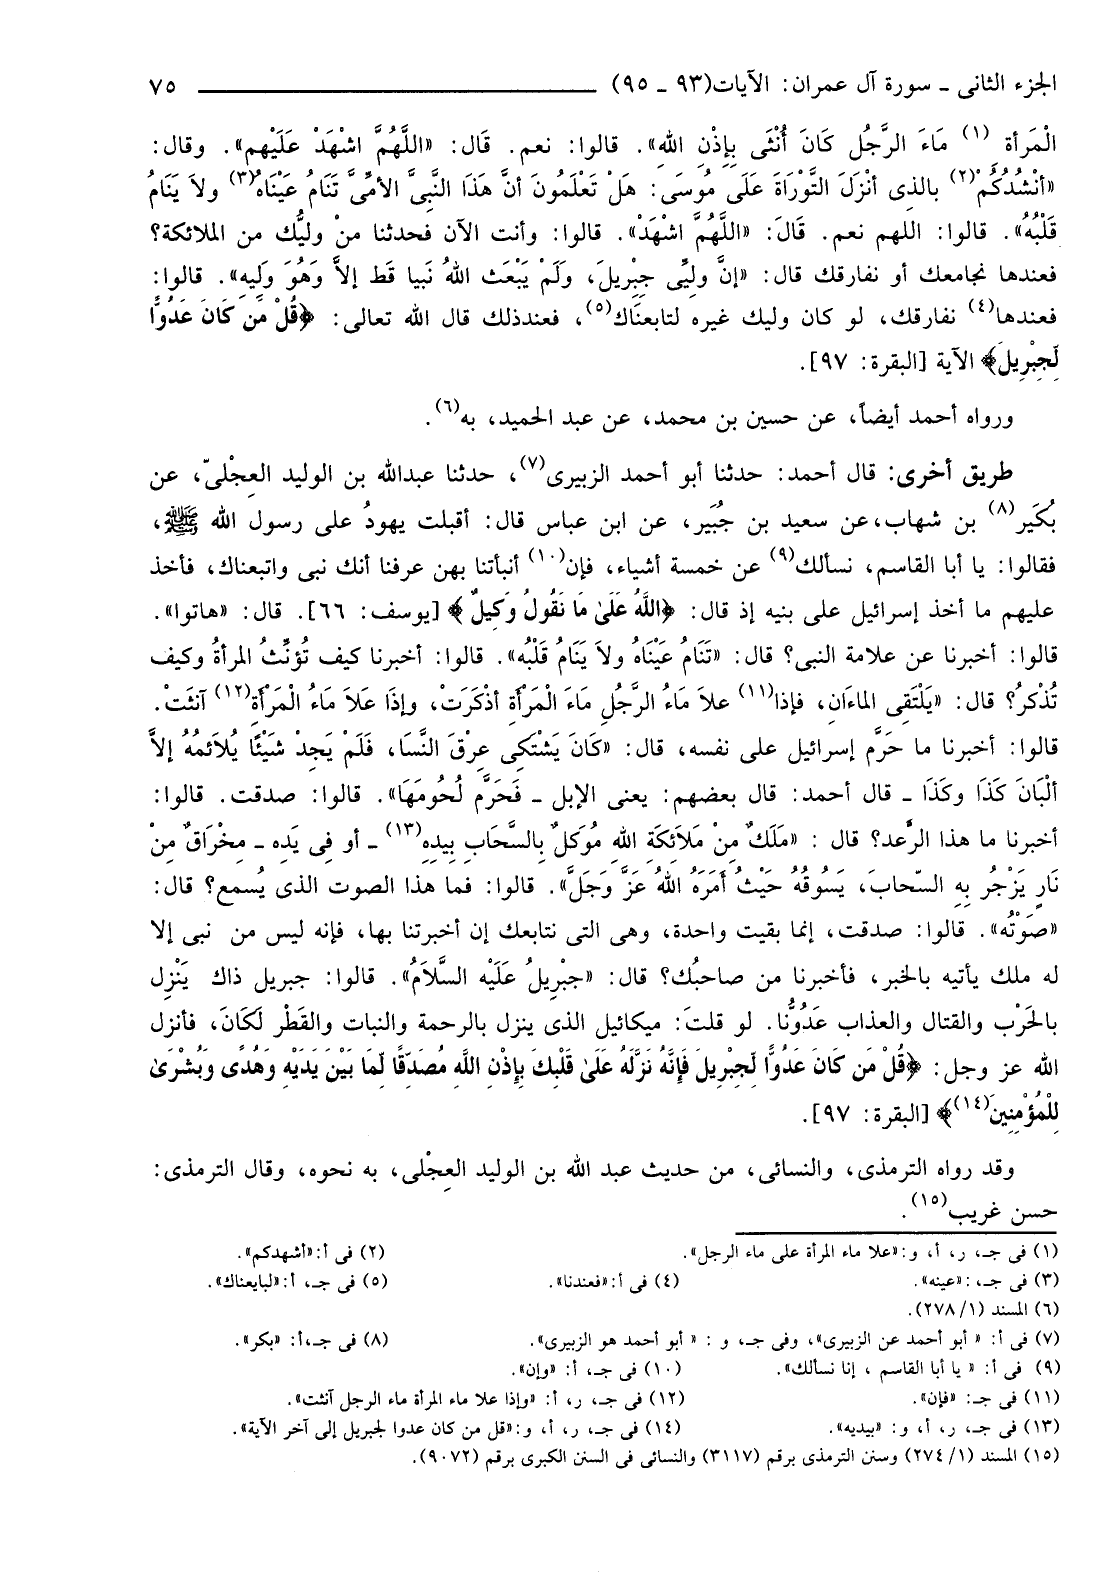 الجزء الثانى ـ سورة آل عمران: الآيات(٩٣ ـ ٩٥) ٧٥
الْمَرأة (١) مَاءَ الرَّجُل كَانَ أُنْثَى بِإِذْنِ اللهِ». قالوا: نعم. قَال: «اللَّهُمَّ اشْهَدْ عَلَيْهِم». وقال:
«أنْشُدُكُمْ(٢) بالذى أنْزَلَ التَّوْرَاةَ عَلَى مُوسَى: هَلْ تَعْلَمُونَ أنَّ هَذَا النَّبىَّ الأمِّىَّ تَنَامُ عَيْنَاهُ(٣) ولاَ يَنَامُ
قَلْبُهُ». قالوا: اللهم نعم. قالَ: «اللَّهُمَّ اشْهَدْ». قالوا: وأنت الآن فحدثنا منْ وليُّك من الملائكة؟
فعندها نجامعك أو نفارقك قال: «إنَّ وليِّى جبْريلَ، ولَمْ يَبْعَث اللهُ نَبيا قَط إلاَّ وَهُوَ وَليه». قالوا:
فعندها(٤) نفارقك، لو كان وليك غيره لتابعنَاك(٥)، فعندذلك قال الله تعالى: ﴿قُلْ مَن كَانَ عَدُوًّا
لِّجِبْرِيلَ﴾ الآية [البقرة: ٩٧].
ورواه أحمد أيضاً، عن حسين بن محمد، عن عبد الحميد، به(٦).
طريق أخرى: قال أحمد: حدثنا أبو أحمد الزبيرى(٧)، حدثنا عبدالله بن الوليد العِجْلىّ، عن
بُكَير(٨) بن شهاب،عن سعيد بن جُبَير، عن ابن عباس قال: أقبلت يهودُ على رسول الله ﷺ،
فقالوا: يا أبا القاسم، نسألك(٩) عن خمسة أشياء، فإن(١٠) أنبأتنا بهن عرفنا أنك نبى واتبعناك، فأخذ
عليهم ما أخذ إسرائيل على بنيه إذ قال: ﴿اللَّهُ عَلَىٰ مَا نَقُولُ وَكِيلٌ﴾ [يوسف: ٦٦]. قال: «هاتوا».
قالوا: أخبرنا عن علامة النبى؟ قال: «تَنَامُ عَيْنَاهُ ولاَ يَنَامُ قَلْبُه». قالوا: أخبرنا كيف تُؤنِّثُ المرأةُ وكيف
تُذْكرُ؟ قال: «يَلْتَقِى الماءَان، فإذا(١١) علاَ مَاءُ الرَّجُلِ مَاءَ الْمَرْأَة أذْكَرَتْ، وإذَا عَلاَ مَاءُ الْمَرْأَة(١٢) آنثَتْ.
قالوا: أخبرنا ما حَرَّم إسرائيل على نفسه، قال: «كَانَ يَشْتَكِى عِرْقَ النَّسَا، فَلَمْ يَجِدْ شَيْئًا يُلاَئمُهُ إلاَّ
ألْبَانَ كَذَا وكَذَا ـ قال أحمد: قال بعضهم: يعنى الإبل ـ فَحَرَّم لُحُومَهَا». قالوا: صدقت. قالوا:
أخبرنا ما هذا الرَّعد؟ قال : «مَلَكٌ مِنْ مَلاَئكَةِ اللهِ مُوَكلٌ بِالسَّحَابِ بِيدِهِ(١٣) ـ أو فِى يَدِه ـ مِخْرَاقٌ مِنْ
نَارٍ يَزْجُر بِهِ السّحابَ، يَسُوقُهُ حَيْثُ أمَرَهُ اللهُ عَزَّ وَجَلَّ». قالوا: فما هذا الصوت الذى يُسمع؟ قال:
«صَوْتُه». قالوا: صدقت، إنما بقيت واحدة، وهى التى نتابعك إن أخبرتنا بها، فإنه ليس من نبى إلا
له ملك يأتيه بالخبر، فأخبرنا من صاحبُك؟ قال: «جبْرِيلُ عَلَيْه السَّلاَمُ». قالوا: جبريل ذاك يَنْزِل
بالحَرْب والقتال والعذاب عَدُوُّنا. لو قلتَ: ميكائيل الذى ينزل بالرحمة والنبات والقَطْر لَكَانَ، فأنزل
الله عز وجل: ﴿قُلْ مَن كَانَ عَدُوًّا لِّجِبْرِيلَ فَإِنَّهُ نَزَّلَهُ عَلَىٰ قَلْبِكَ بِإِذْنِ اللَّهِ مُصَدِّقًا لِّمَا بَيْنَ يَدَيْهِ وَهُدًى وَبُشْرَىٰ
لِلْمُؤْمِنِينَ(١٤)﴾ [البقرة: ٩٧].
وقد رواه الترمذى، والنسائى، من حديث عبد الله بن الوليد العِجْلى، به نحوه، وقال الترمذى:
حسن غريب(١٥).
(١) فى جـ، ر، أ، و:«علا ماء المرأة على ماء الرجل». (٢) فى أ:«أشهدكم».
(٣) فى جـ، :«عينه». (٤) فى أ:«فعندنا». (٥) فى جـ، أ:«لبايعناك».
(٦) المسند (١/ ٢٧٨).
(٧) فى أ: « أبو أحمد عن الزبيرى»، وفى جـ، و : « أبو أحمد هو الزبيرى». (٨) فى جـ،أ: «بكر».
(٩) فى أ: « يا أبا القاسم ، إنا نسألك». (١٠) فى جـ، أ: «وإن».
(١١) فى جـ: «فإن». (١٢) فى جـ، ر، أ: «وإذا علا ماء المرأة ماء الرجل آنثت».
(١٣) فى جـ، ر، أ، و: «بيديه». (١٤) فى جـ، ر، أ، و:«قل من كان عدوا لجبريل إلى آخر الآية».
(١٥) المسند (١/ ٢٧٤) وسنن الترمذى برقم (٣١١٧) والنسائى فى السنن الكبرى برقم (٩٠٧٢).